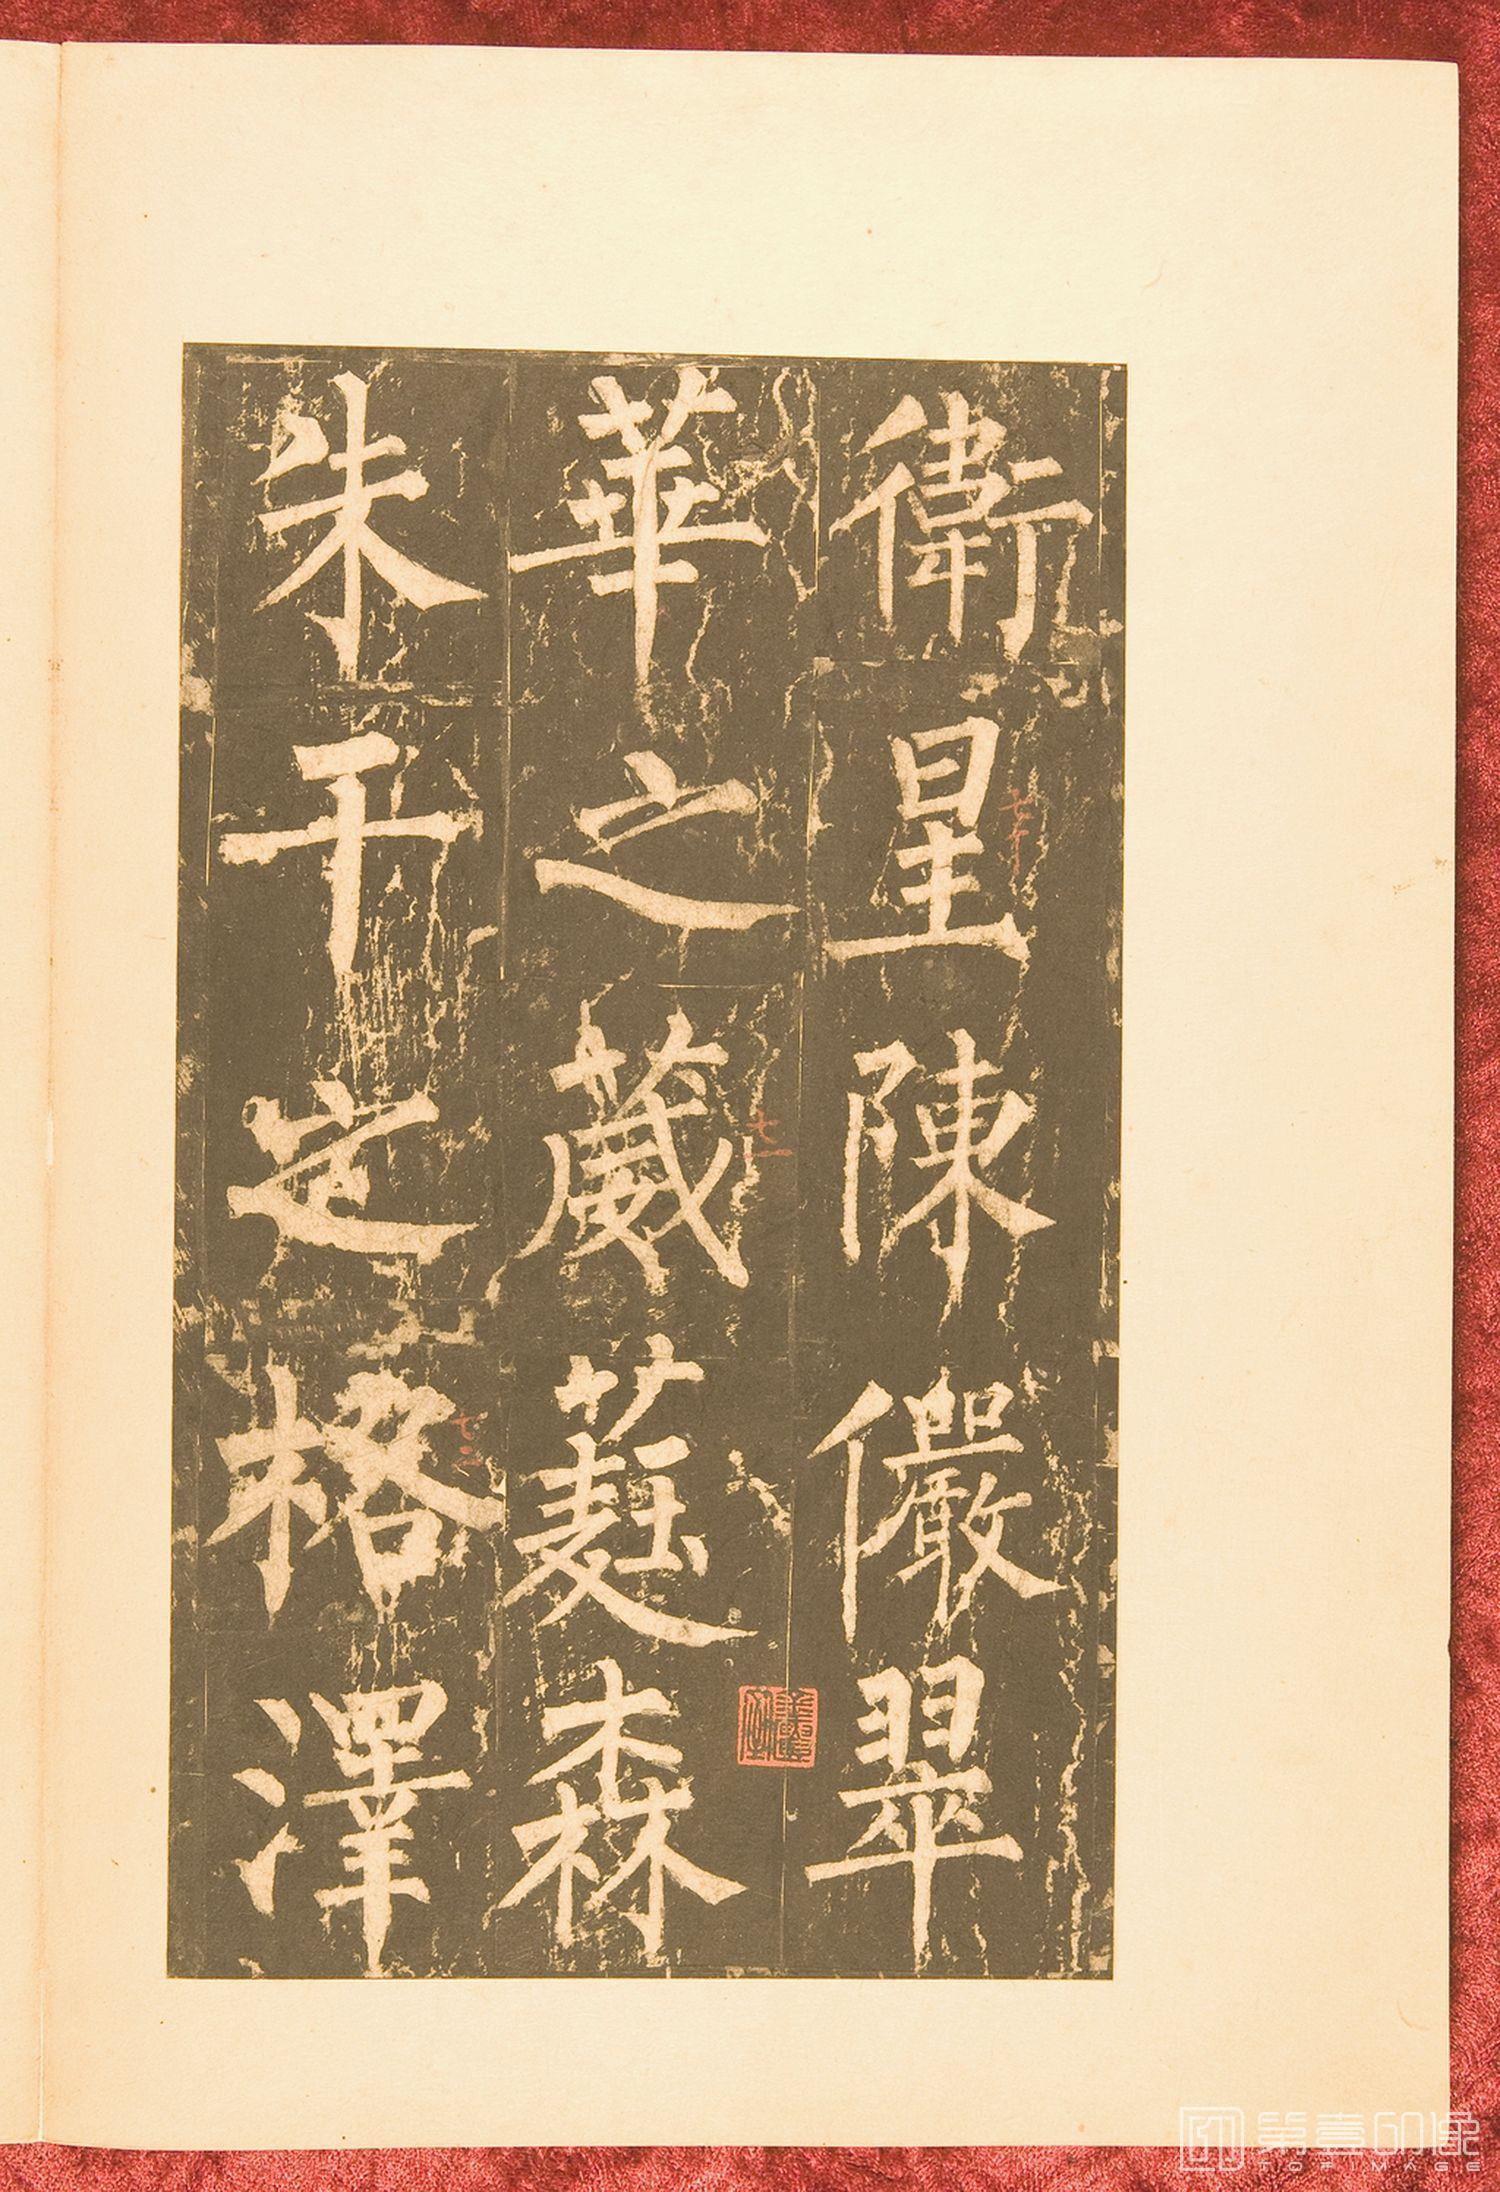 衛星陳儼翠
華之葳蕤森
朱干之格澤
七十
七一
七二
第壹印像
TOPIMAGE